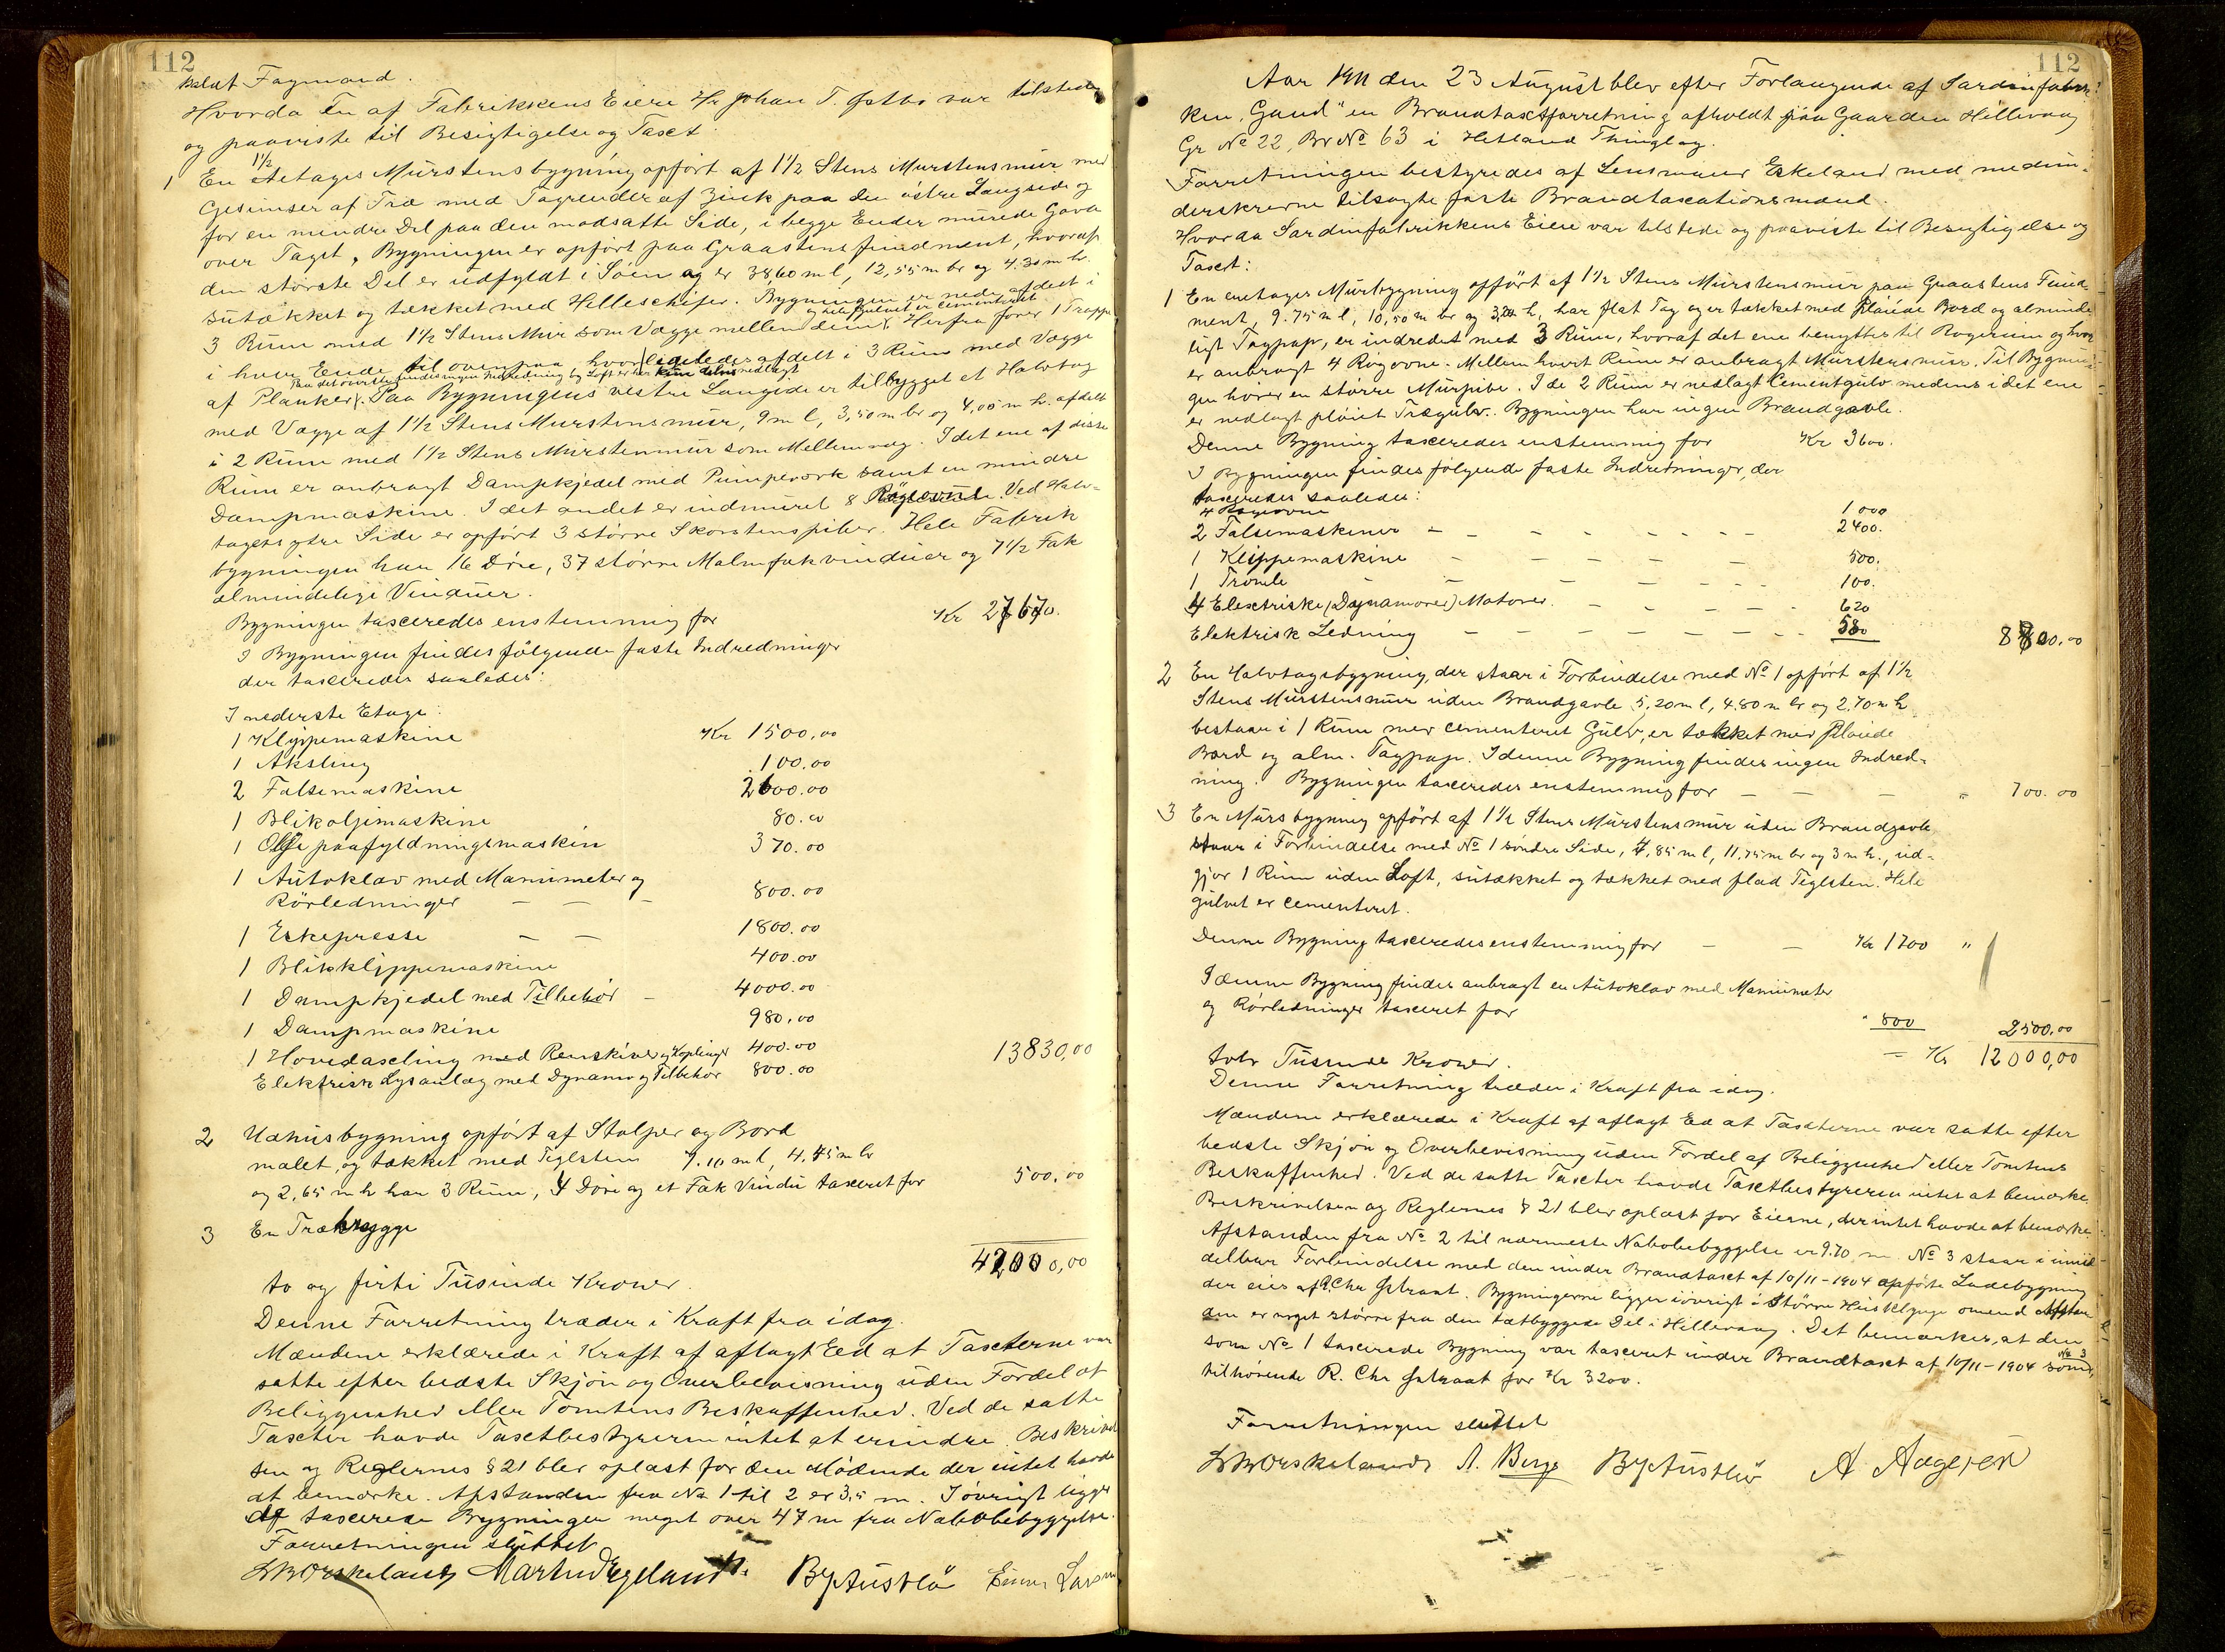 112
Balat Fagmand.
Hvorda En af Fabrikkens Eiere Hr Johan T. Østbø var tilstede
og paaviste til Besigtigelse og Taxt:
1 En 1½ Aetages Murstensbygning opført af 1½ Stens Murstensmur med
Gesimser af Træ med Tagrender af Zink paa den østre Langside og
for en mindre Del paa den modsatte Side, i begge Ender murede Gavle
over Taget, Bygningen er opført paa Graastensfundment, hvoraf
den største Del er udfyldt i Søen og er 38,60 m l, 12,55 m br og 4.30 m h.
sutækket og tækket med Helleschifer. Bygningen er nede afdelt i
og hele gulvet er cementeret
3 Rum med 1½ Stens Mur som Vægge mellem dem. Herfra fører 1 Trappe
i hver Ende til ovenpaa hvor ligeledes afdelt i 3 Rum med Vægge
Paa det øverste findes ingen Indredning og Loft er kun delvis nedlagt
af Planker. Paa Bygningens vestre Langside er tilbygget et Halvtag
med Vægge af 1½ Stens Murstensmur, 9 m l, 3,50 m br og 4,00 m h. afdelt
i 2 Rum med 1½ Stens Murstenmur som Mellemvæg. I det ene af disse
Rum er anbragt Dampkjedel med Pumpeverk samt en mindre
Dampmaskine. I det andet er indmuret 8 Røgeovne. Ved Halv-
tagets ytre Side er opført 3 større Skorstenspiber. Hele Fabrik
bygningen har 16 Døre, 37 større Malmfakvinduer og 7½ Fak
almindelige Vinduer.
Bygningen taxeredes enstemmig for Kr 27670.
I Bygningen findes følgende faste Indredninger
der taxeredes saaledes:
I nederste Etage:
1 Klippemaskine Kr 1500,00
1 Aksling 100.00
2 Falsemaskine 2600.00
1 Blikoljemaskine 80.00
1 Olje paafyldningsmaskin 370.00
1 Autoklav med Manumeter og
Rørledninger — — — 800.00
1 Eskepresse — — 1800.00
1 Blikklippemaskine 400.00
1 Dampkjedel med Tilbehør — 4000.00
1 Dampmaskine 980.00
1 Hovedaxling med Remskiver og Koplinger 400.00 13830,00
Elektrisk Lysanlæg med Dynamo og Tilbehør 800.00
2 Udhusbygning opført af Stolper og Bord
malet, og tækket med Teglsten 7.10 m l, 4.45 m br
og 2,65 m h har 3 Rum, 4 Døre og et Fak Vindu taxeret for 500,00
3 En Træbrygge
42000,00
to og firti Tusinde Kroner.
Denne Forretning træder i Kraft fra idag.
Mændene erklærede i Kraft af aflagt Eed at Taxterne var
satte efter bedste Skjøn og Overbevisning uden Fordel af
Beliggenhed eller Tomtens Beskaffenhed. Ved de satte
Taxter havde Taxtbestyreren intet at erindre. Beskrivel
sen og Reglernes § 21 blev oplæst for den Mødende der intet havde
at bemærke. Afstanden fra No 1 til 2 er 3,5 m. Iøvrigt ligger
de taxerede Bygninger meget over 47 m fra Nabobebyggelse.
Forretningen sluttet
Martin Egeland ByAustbø Einar Larsen
112
Aar 1911 den 23 August blev efter Forlangende af Sardinfabrik
ken "Gand" en Brandtaxtforretning afholdt paa Gaarden Hillevaag
Gr No 22, Br No 63 i Hetland Thinglag.
Forretningen bestyredes af Lensmann Eskeland med medun-
derskrevne tilsagte faste Brandtaxationsmænd.
Hvorda Sardinfabrikkens Eiere var tilstede og paaviste til Besigtigelse og
Taxt:
1 En enetages Murbygning opført af 1½ Stens Murstensmur paa Graastens Funda
ment, 9.75 m l, 10,50 m br og 3,20 h, har flat Tag og er tækket med pløiede Bord og alminde
ligt Tagpap, er indredet med 3 Rum, hvoraf det ene benyttes til Røgerum og hvor
er anbragt 4 Røgovne. Mellem hvert Rum er anbragt Murstensmur. Til Bygnin-
gen hører en større Murpibe. I de 2 Rum er nedlagt Cementgulv medens i det ene
er nedlagt pløiet Trægulv. Bygningen har ingen Brandgavle.
Denne Bygning taxeredes enstemmig for Kr 3600.
I Bygningen findes følgende faste Indretninger, der
taxeredes saaledes:
4 Røgeovne 1000
2 Falsemaskiner — — — — — — 2400.
1 Klippemaskine — — — — — 500.
1 Tromle — — — — — 100.
4 Elextriske (Dynamoer) Motorer. — — — — 620
Elektrisk Ledning — — — — — — — 580 8800,00
2 En Halvtagsbygning, der staar i Forbindelse med No 1 opført af 1½
Stens Murstensmur uden Brandgavle 5,20 m l, 4.80 m br og 2,70 m h
bestaar i 1 Rum med cementeret Gulv, er tækket med pløiede
Bord og alm. Tagpap. I denne Bygning findes ingen Indred-
ning. Bygningen taxeredes enstemmig for — — — " 700.00
3 En Mursbygning opført af 1½ Stens Murstensmur uden Brandgavle
staar i Forbindelse med No 1 søndre Side, 4,85 m l, 11,75 m br og 3 m h., ud-
gjør 1 Rum uden Loft, sutækket og tækket med flad Teglsten. Hele
gulvet er cementeret.
Denne Bygning taxeredes enstemmig for — — Kr 1700 "
I denne Bygning findes anbragt en Autoklav med Manumeter
og Rørledninger taxeret for " 800 2500.00
tolv Tusinde Kroner. — Kr 12000,00
Denne Forretning træder i Kraft fra idag.
Mændene erklærede i Kraft af aflagt Ed at Taxterne var satte efter
bedste Skjøn og Overbevisning uden Fordel af Beliggenhed eller Tomtens
Beskaffenhed. Ved de satte Taxter havde Taxtbestyreren intet at bemærke.
Beskrivelsen og Reglernes § 21 blev oplæst for Eierne, der intet havde at bemærke.
Afstanden fra No 2 til nærmeste Nabobebyggelse er 9.70 m No 3 staar i umid-
delbar Forbindelse med den under Brandtaxt af 10/11-1904 opførte Ladebygning
der eies af R. Chr Østraat. Bygningerne ligger iøvrigt i større Husklynge omend Afstan
den er noget større fra den tætbyggede Del i Hillevaag. Det bemærkes, at den
som No 1 taxerede Bygning var taxeret under Brandtaxt af 10/11-1904 som No 3
tilhørende R. Chr Østraat for Kr 3200.
Forretningen sluttet
A. Berge ByAustbø A Aagesen